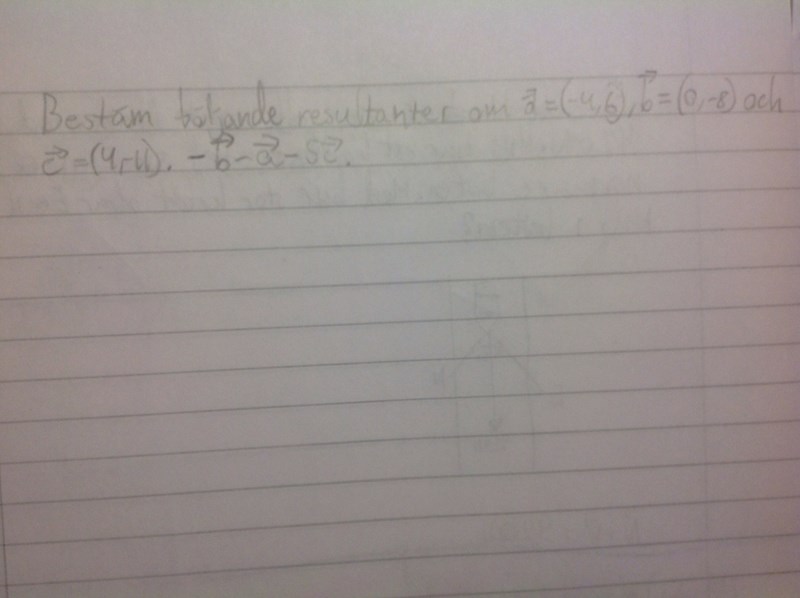 Bestäm följande resultanter om a⃗=(-4,6), b⃗=(0,-8) och
c⃗=(4,-4). -b⃗-a⃗-5c⃗.